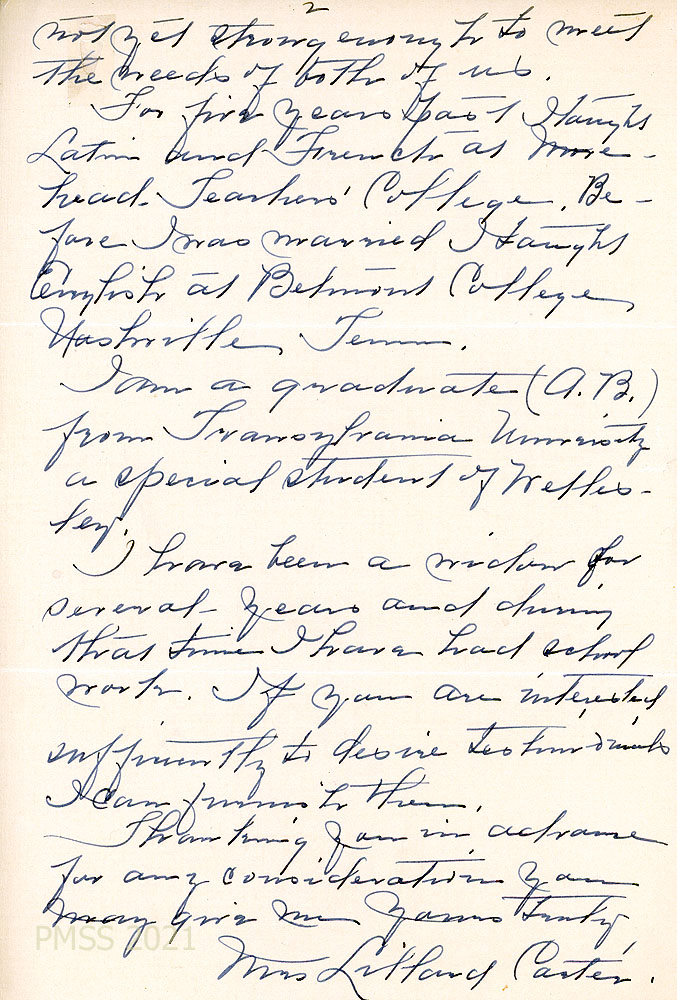 2
not yet strong enough to meet
the needs of both of us.
For five years past I taught
Latin and French at More-
head Teachers' College. Be-
fore I was married I taught
English at Belmont College,
Nashville, Tenn.
I am a graduate (A.B.)
from Transylvania University
a special student of Welles-
ley.
I have been a widow for
several years and during
that time I have had school
work. If you are interested
sufficiently to desire testimonials
I can furnish them.
Thanking you in advance
for any consideration you
may give me Yours truly,
Mrs Lillard Carter.
PMSS 2021